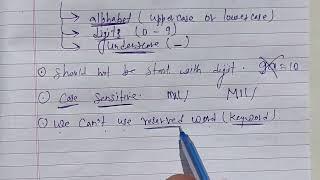 → alphabet (uppercase or lowercase)
→ digits (0 - 9)
→ underscore (_)
should not be start with digit.
Case Sensitive.
we can't use reserved word (keyword)